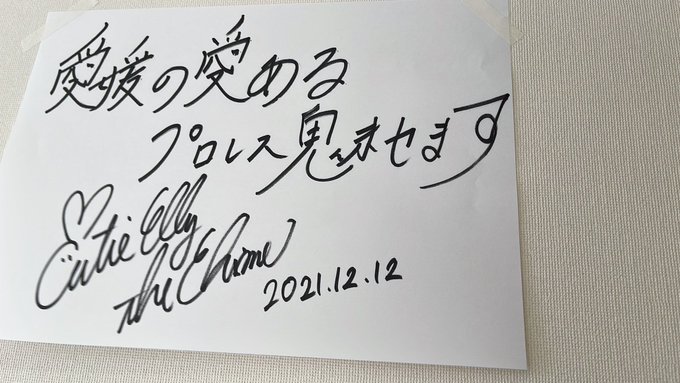 愛媛の愛ある
プロレス魅せます
♡Cutie Elly
the Ehime
2021.12.12